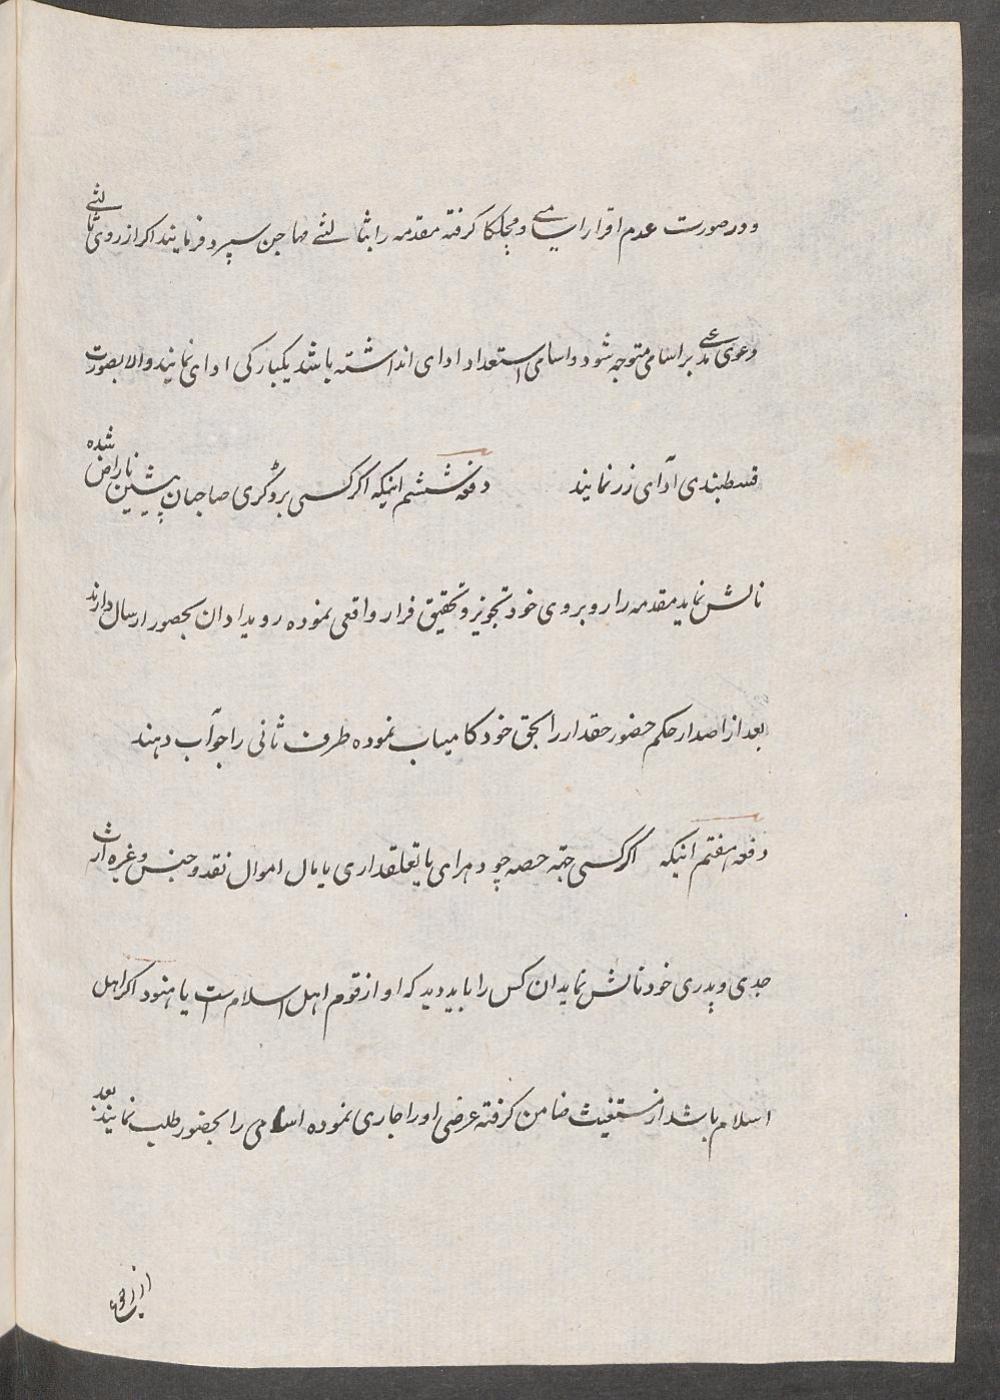 و در صورت عدم اقرار اسامی و مچلکا گرفته مقدمه را بثالثی مهاجن سپرد فرمایند اکر از روی ثالثی
دعوی مدعی بر اسامی متوجه شود و اسامی استعداد ادای انداشته باشد یکبارکی ادای نمایند والا بصورت
قسطبندی ادای زر نمایند دفعه ششم اینکه اکر کسی بر دگری صاحبان پیشین ناراض شده
نالش نماید مقدمه را روبروی خود تجویز و تحقیق قرار واقعی نموده رویداد ان بحضور ارسال دارند
بعد از اصدار حکم حضور حقدار را بحق خود کامیاب نموده طرف ثانی را جواب دهند
دفعه هفتم اینکه اکر کسی جهة حصه چودهرای یا تعلقداری یا مال اموال نقد و جنس وغیره ارث
جدی و پدری خود نالش نماید ان کس را باید دید که او از قوم اهل اسلام است یا هنود اکر اهل
اسلام باشد از مستغیث ضامن کرفته عرضی او را جاری نموده اسامی را بحضور طلب نمایند بعد